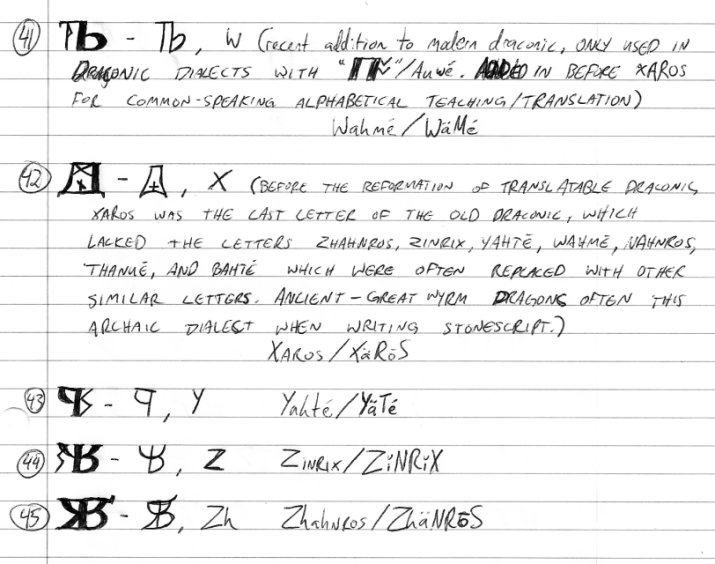 41 Ъ - Ъ, W (recent addition to modern draconic, ONLY USED IN
DRACONIC DIALECTS WITH " "/Auwé. ADDED IN BEFORE XAROS
FOR COMMON-SPEAKING ALPHABETICAL TEACHING/TRANSLATION)
Wahmé/WäMé
42 - , X (BEFORE THE REFORMATION OF TRANSLATABLE DRACONIC,
XAROS WAS THE LAST LETTER OF THE OLD DRACONIC, WHICH
LACKED THE LETTERS ZHAHNROS, ZINRIX, YAHTÉ, WAHMÉ, VAHNROS,
THANUÉ, AND BAHTÉ WHICH WERE OFTEN REPLACED WITH OTHER
SIMILAR LETTERS. ANCIENT-GREAT WYRM DRAGONS OFTEN THIS
ARCHAIC DIALECT WHEN WRITING STONESCRIPT.)
XAROS/XäRōS
43 - , Y Yahté/YäTé
44 - , Z ZINRIX/ZiNRiX
45 - , Zh ZhahNROS/ZhäNRōS